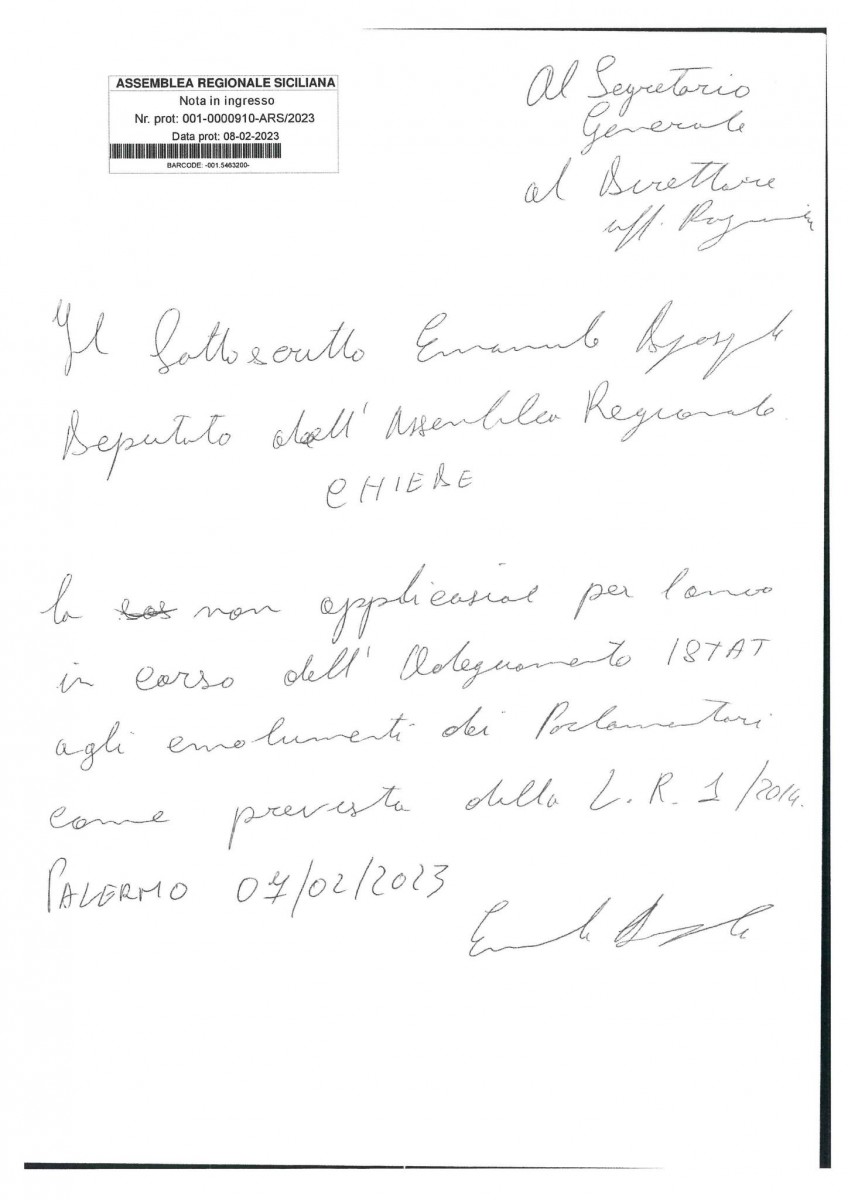 ASSEMBLEA REGIONALE SICILIANA
Nota in ingresso
Nr. prot: 001-0000910-ARS/2023
Data prot: 08-02-2023
BARCODE: -001.5463200-
Al Segretario
Generale
al Direttore
uff.
Il Sottoscritto Emanuele
Deputato dell' Assemblea Regionale.
CHIEDE
la non applicasione per l'anno
in corso dell' Adeguamento ISTAT
agli emolumenti dei Parlamentari
come prevista dalla L. R. 1/2014.
PALERMO 07/02/2023